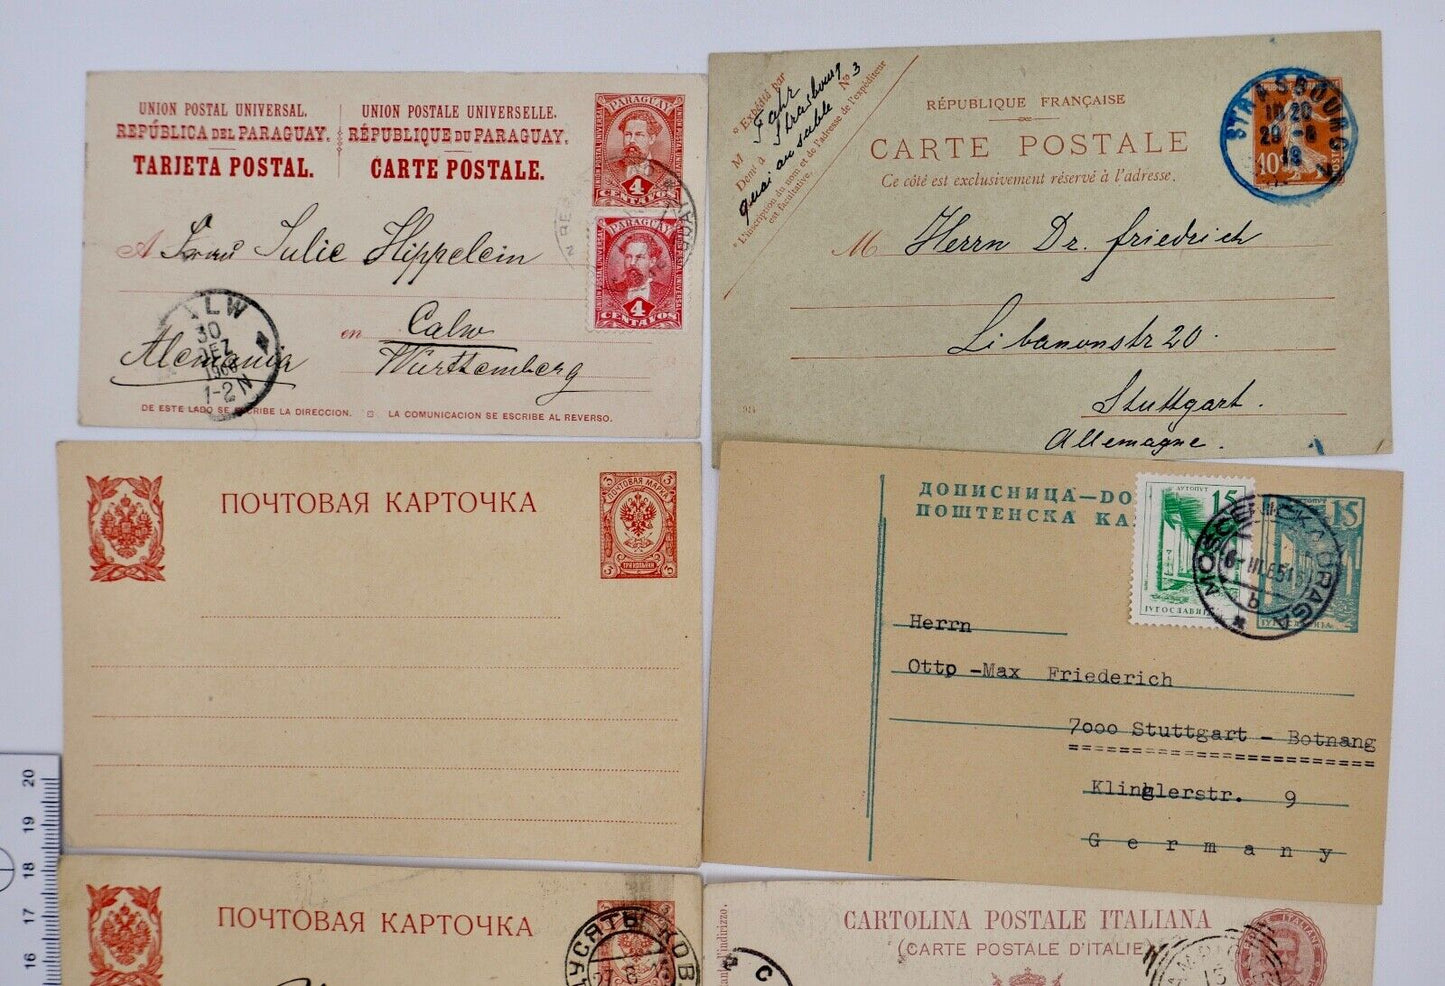 UNION POSTAL UNIVERSAL.
REPÚBLICA DEL PARAGUAY.
TARJETA POSTAL.
UNION POSTALE UNIVERSELLE.
RÉPUBLIQUE DU PARAGUAY.
CARTE POSTALE.
PARAGUAY
UNION POSTAL UNIVERSAL
4
CENTAVOS
PARAGUAY
UNION POSTAL UNIVERSAL
4
CENTAVOS
A Frau Julie Hippelein
en Calw
Württemberg
Alemania
30
DEZ
1-2N
DE ESTE LADO SE ESCRIBE LA DIRECCION. LA COMUNICACION SE ESCRIBE AL REVERSO.
* Expédié par
M Fahr
Demt à Strasbourg
quai au sable No 3
* L'inscription du nom et de l'adresse de l'expéditeur
est facultative.
RÉPUBLIQUE FRANÇAISE
CARTE POSTALE
Ce côté est exclusivement réservé à l'adresse.
STRASBOURG
18 20
29 -8
10
M Herrn Dr. Friedrich
Libanonstr 20.
Stuttgart.
Allemagne.
ПОЧТОВАЯ КАРТОЧКА
3 3
ПОЧТОВАЯ МАРКА
ТРИ КОПѢЙКИ
3 3
ДОПИСНИЦА—DO
ПОШТЕНСКА КА
АУТОПУТ
15
ЈУГОСЛАВИЈА
15
MOŠĆENIČKA DRAGA
b
Herrn
Otto -Max Friederich
7000 Stuttgart - Botnang
Klinglerstr. 9
Germany
20
19
18
17
16
ПОЧТОВАЯ КАРТОЧКА
CARTOLINA POSTALE ITALIANA
(CARTE POSTALE D'ITALIE)
l'indirizzo.
C